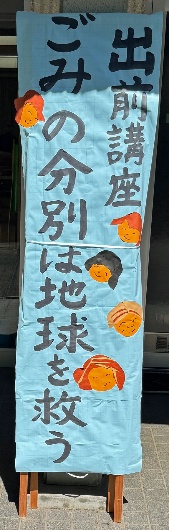 出前講座
ごみの分別は地球を救う